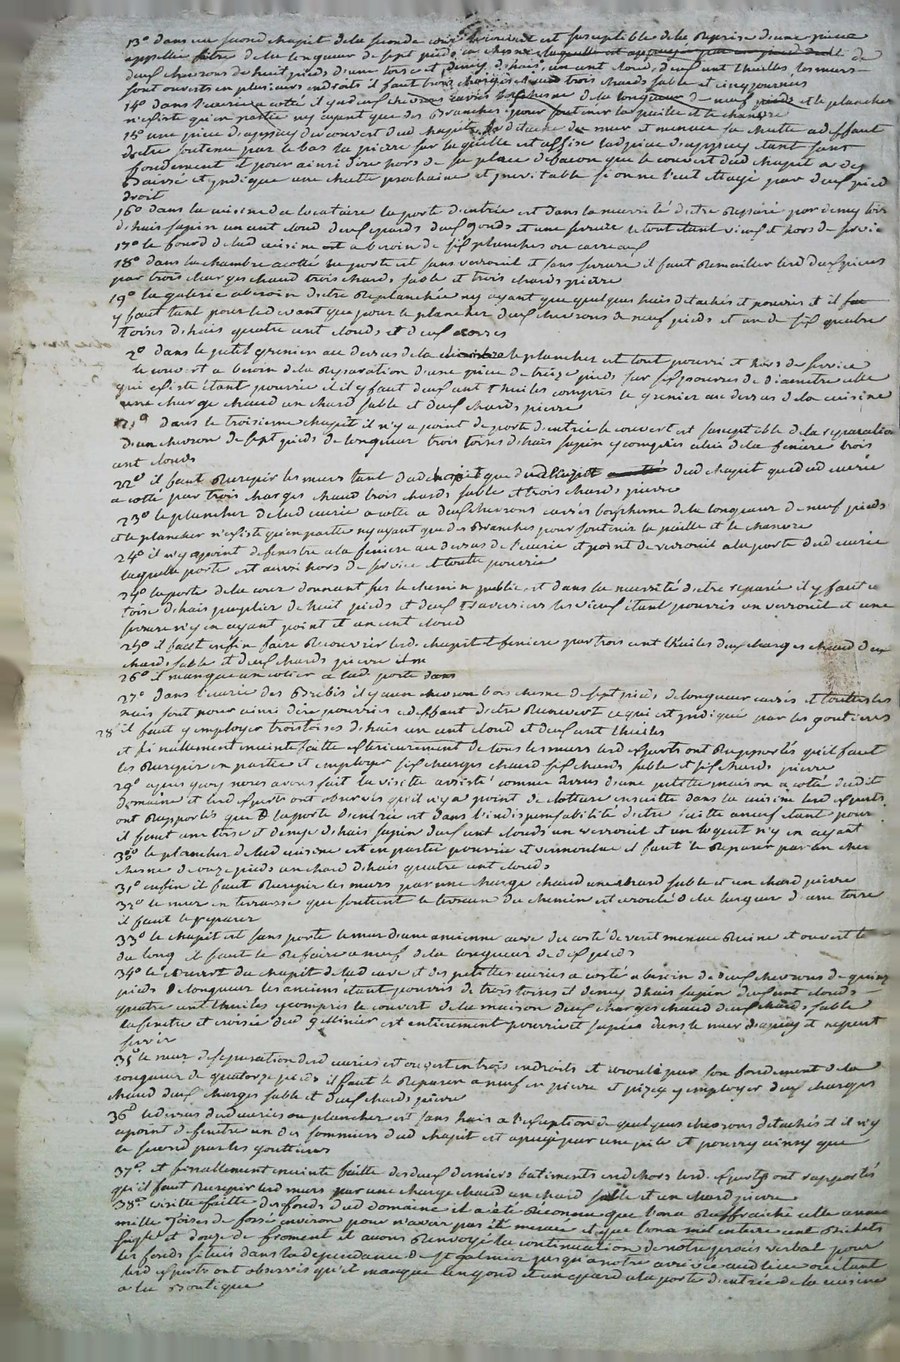 13° dans un second chapit de la seconde cour le couvert est susceptible de la reprise d'une piece
appellée de la longueur de sept pieds
deux chevrons de huit pieds d'une torse et demy d'hais un cent cloud, deux cent thuilles, les murs
sont ouverts en plusieurs endroits il faut trois charges chaud trois chards sable et cinq journées
14° dans l'ecurie a cotté il y a deux chevrons carrés de la longueur de neuf pieds et le plancher
n'existe qu'en partie n'y ayant que des branches pour soutenir la paille et le chanvre
15° une piece d'appuy du couvert dud chapit se détache du mur et menace sa chutte a deffaut
d'etre soutenu par le bas la pierre sur laquelle est assise lad piece d'appuy etant sans
fondement et pour ainsi dire hors de sa place de facon que le couvert dud chapit a deja
baissé et indique une chutte prochaine et inevitable si on ne l'eut etayé par deux pied
droit
16° dans la cuisine du locataire la porte d'entrée est dans la necessité d'etre reparé par demy torse
d'hais sapin un cent cloud deux gonds et une serrure le tout etant vieux et hors de service
17° le fourd de lad cuisine est a besoin de six planches ou carreaux
18° dans la chambre a cotté sa porte est sans verrouil et sans serrure il faut remailler les deux pieces
par trois charges chaud trois chards sable et trois chards pierre
19° la galerie a besoin d'etre replanchée n'y ayant que quelques hais détachés et pourris et il
y faut tant pour le devant que pour le plancher deux chevrons de neuf pieds et un de six quatre
toises d'hais quatre cent clouds et deux
2° dans le petit grenier au dessus de la le plancher est tout pourri et hors de service
le couvert a besoin de la reparation d'une piece de treize pieds sur six pouces de diametre celle
qui existe etant pourrie et il y faut deux cent thuiles compris le grenier au dessus de la cuisine
une charge chaud un chard sable et deux chards pierre
21° dans le troisieme chapit il n'y a point de porte d'entrée le couvert est susceptible de la reparation
d'un chevron de sept pieds de longueur trois toises d'hais sapin y compris celui de la feniere trois
cent clouds
22° il faut recrepir les murs tant dud chapit que dud chapit que de lad ecurie
a cotté par trois charges chaud trois chards sable et trois chards pierre
23° le plancher de lad ecurie a cotté a deux chevrons carrés bois chesne de la longueur de neuf pieds
et le plancher n'existe qu'en partie n'y ayant que des branches pour soutenir la paille et le chanvre
24° il n'y a point de fenestre a la feniere au dessus de l'ecurie et point de verrouil a la porte de lad ecurie
laquelle porte est aussi hors de service et toute pourrie
24° la porte de la cour donnant sur le chemin public est dans la necessité d'etre reparée il y faut
toise d'hais peuplier de huit pieds et deux traversiers les vieux etant pourris un verrouil et une
serrure n'y en ayant point et un cent cloud
25° il faut enfin faire recouvrir led. chapit et feniere par trois cent thuiles deux charges chaud deux
chards sable et deux chards pierre
26° il manque un a lad porte
27° dans l'ecurie des brebis il y a un chevron bois chesne de sept pieds de longueur carrés et toutes les
hais sont pour ainsi dire pourries a deffaut d'etre recouvert ce qui est indiqué par les goutieres
28° il faut y employer trois toises d'hais un cent cloud et deux cent thuiles
et finallement enceinte faitte exterieurement de tous les murs lesd experts ont rapportés qu'il faut
les recrepir en partie et employer six charges chaud six chards sable et six chards pierre
29° apres quoy nous avons fait la visitte assisté comme dessus d'une petitte maison a cotté dudit
domaine et lesd experts ont observés qu'il n'y a point de clotture ensuitte dans la cuisine lesd experts
ont rapportés que la porte d'entrée est dans l'indispensabilité d'etre faitte a neuf etant pour
il faut une torse et demye d'hais sapin deux cent clouds un verrouil et un loquet n'y en ayant
30° le plancher de lad cuisine est en partie pourrie et vermoulue il faut le reparer par un
chesne de onze pieds un chard d'hais quatre cent clouds
31° enfin il faut recrepir les murs par une charge chaud un chard sable et un chard pierre
32° le mur en terrasse qui soutient le terrain du chemin est ecroulé de la largeur d'une torse
il faut le reparer
33° le chapit est sans porte le mur d'une ancienne cave du costé de vent menace ruine et ouvert le
du long il faut le refaire a neuf de la longueur de dix pieds
34° le couvert du chapit de lad cave et des petittes ecuries a costé a besoin de deux chevrons de quinze
pieds de longueur les anciens etant pourris de trois toises et demy d'hais sapin deux cent clouds
quatre cent thuiles y compris le couvert de la maison deux charges chaud deux chards sable
la fenetre et croisée dud gellinier est entierement pourrie et sapées dans le mur d'appuy et ne peut
servir
35° le mur de separation desd ecuries est ouvert en trois endroits et ecroulé par son fondement de la
longueur de quatorze pieds il faut le reparer a neuf en pierre et pizey y employer deux charges
chaud deux charges sable et deux chards pierre
36° le dessus desd ecuries ou plancher est sans hais a l'exception de quelques chevrons détachés et il n'y
a point de fenetre un des sommiers dud chapit est apuyé par une pile et pourry ainsy que
le second par les goutieres
37° et finallement enceinte faitte des deux derniers batiments en dehors lesd. experts ont rapportés
qu'il faut recrepir lesd murs par une charge chaud un chard sable et un chard pierre
38° visitte faitte des fonds dud domaine il a eté reconnu que l'on a raffraichi celle année
mille toises de fossé environ pour n'avoir pas eté menacé et que l'on a mil entiere cent bichets
et douze de froment et avons renvoyé la continuation de notre procés verbal pour
les fonds situés dans la dependance de St galmier jusqu'a notre arrivée aud lieu ou etant
lesd experts ont observés qu'il manque un gond et un a la porte d'entrée de la cuisine
a la boutique